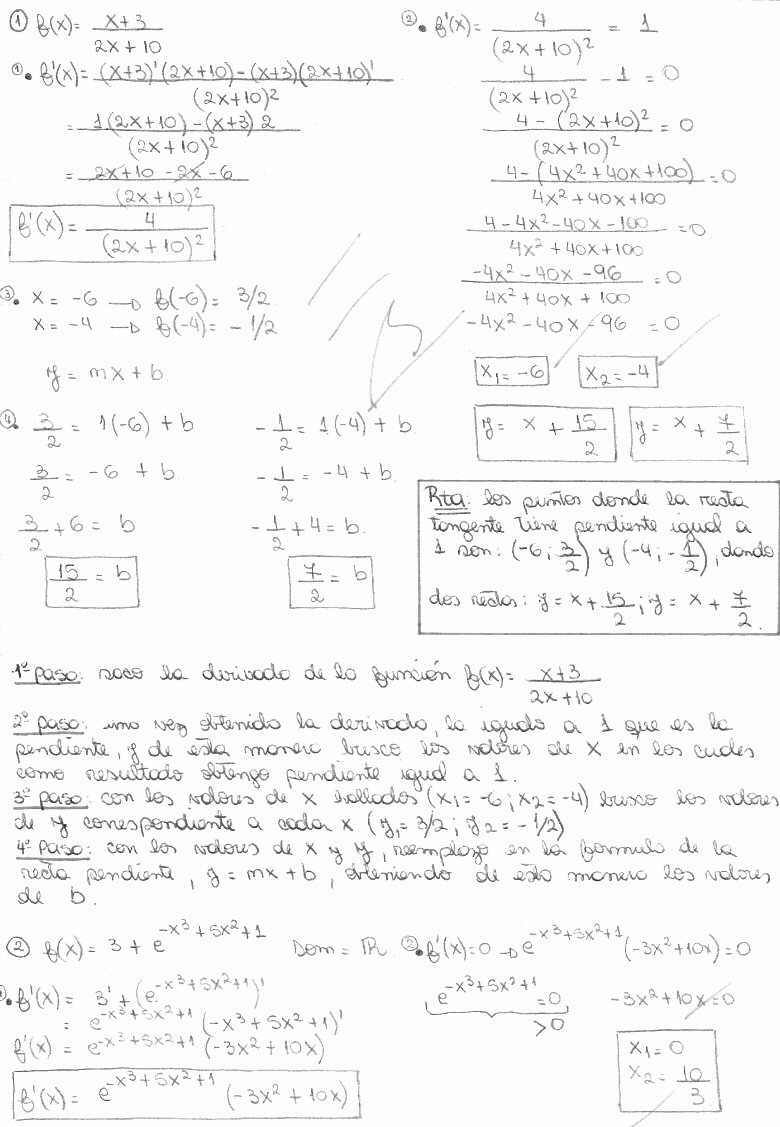 ① f(x) = (x+3)/(2x+10)
①• f'(x) = ((x+3)'(2x+10) - (x+3)(2x+10)')/(2x+10)²
= (1(2x+10) - (x+3)2)/(2x+10)²
= (2x+10-2x-6)/(2x+10)²
f'(x) = 4/(2x+10)²
②• f'(x) = 4/(2x+10)² = 1
4/(2x+10)² - 1 = 0
(4 - (2x+10)²)/(2x+10)² = 0
(4 - (4x²+40x+100))/(4x²+40x+100) = 0
(4-4x²-40x-100)/(4x²+40x+100) = 0
(-4x²-40x-96)/(4x²+40x+100) = 0
-4x²-40x-96 = 0
x₁ = -6 x₂ = -4
y = x + 15/2 y = x + 7/2
③• x = -6 → f(-6) = 3/2
x = -4 → f(-4) = -1/2
y = mx + b
④• 3/2 = 1(-6) + b
3/2 = -6 + b
3/2 + 6 = b
15/2 = b
-1/2 = 1(-4) + b
-1/2 = -4 + b
-1/2 + 4 = b
7/2 = b
Rta: los puntos donde la recta
tangente tiene pendiente igual a
1 son: (-6; 3/2) y (-4; -1/2), dando
dos rectas: y = x + 15/2; y = x + 7/2.
1º paso: saco la derivada de la función f(x) = (x+3)/(2x+10)
2º paso: una vez obtenida la derivada, la igualo a 1 que es la
pendiente, y de esta manera busco los valores de x en los cuales
como resultado obtengo pendiente igual a 1.
3º paso: con los valores de x hallados (x₁=-6; x₂=-4) busco los valores
de y correspondiente a cada x (y₁=3/2; y₂=-1/2)
4º paso: con los valores de x y y, reemplazo en la formula de la
recta pendiente, y = mx + b, obteniendo de esta manera los valores
de b.
② f(x) = 3 + e^(-x³+5x²+1) Dom = ℝ
•f'(x) = 3' + (e^(-x³+5x²+1))'
= e^(-x³+5x²+1) (-x³+5x²+1)'
f'(x) = e^(-x³+5x²+1) (-3x²+10x)
f'(x) = e^(-x³+5x²+1) (-3x²+10x)
②• f'(x)=0 → e^(-x³+5x²+1) (-3x²+10x) = 0
e^(-x³+5x²+1) = 0 -3x²+10x = 0
>0
x₁ = 0
x₂ = 10/3